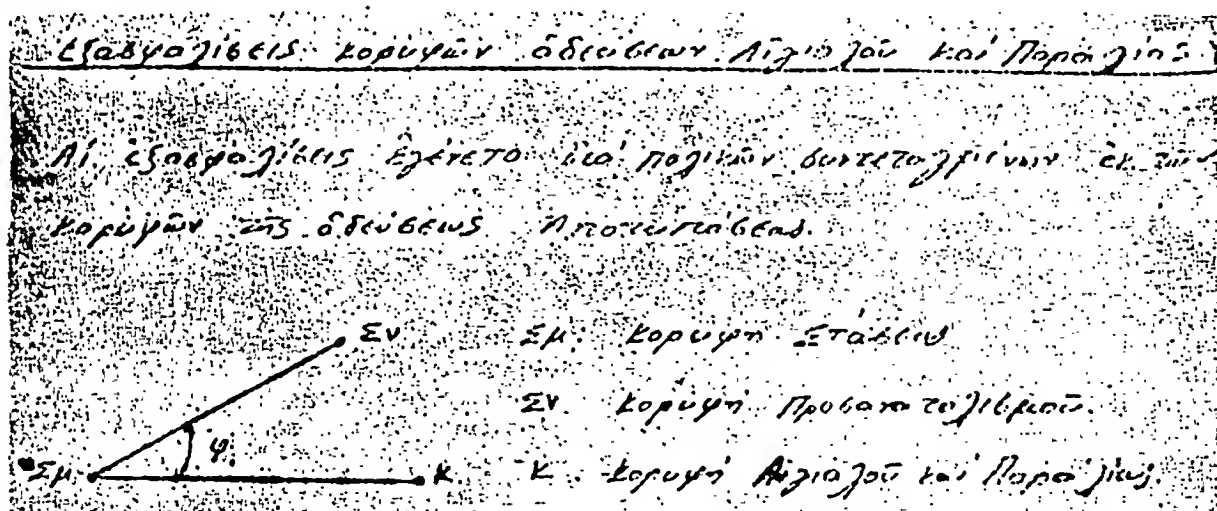 Ἐξασφαλίσεις κορυφῶν ὁδεύσεων Αἰγιαλοῦ καί Παραλίας
Αἱ ἐξασφαλίσεις ἐγένετο διά πολικῶν συντεταγμένων ἐκ τῶν
κορυφῶν τῆς ὁδεύσεως Ἀποτυπώσεως.
Σν
Σμ: Κορυφή Στάσεως
Σν. Κορυφή Προσανατολισμοῦ.
φ.
Σμ
Κ
Κ. Κορυφή Αἰγιαλοῦ καί Παραλίας.